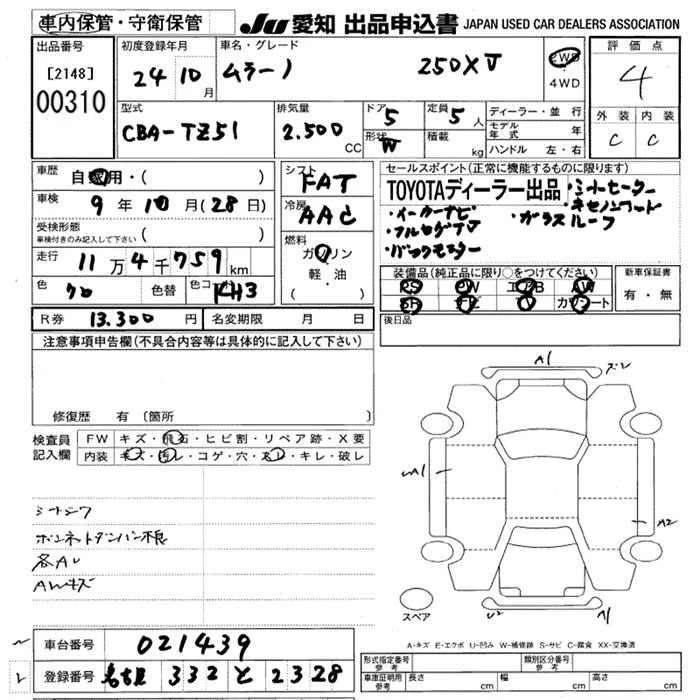 車内保管・守衛保管
JU 愛知 出品申込書 JAPAN USED CAR DEALERS ASSOCIATION
出品番号
[2148]
00310
初度登録年月
24 10月
車名・グレード
ムラーノ 250XV
2WD
4WD
評価点
4
外装 内装
C C
型式
CBA-TZ51
排気量
2.500 CC
ドア 5
形状 W
定員 5人
積載 kg
ディーラー・並行
モデル年式 年
ハンドル 左・右
車歴 自家用・( )
車検 9年10月(28日)
受検形態
車検付きのみ記入して下さい ( )
走行 11万4千759km
色 クロ 色替 色コード KH3
シフト FAT
冷房 AAC
燃料
ガソリン
軽・油
( )
セールスポイント(正常に機能するものに限ります)
TOYOTAディーラー出品 ・シートヒーター
・イーカーナビ ・ガラスルーフ
・フルセグTV
・バックモニター
装備品(純正品に限り○をつけてください)
PS PW エアB AW
SR ナビ TV カワシート
新車保証書
有・無
R券 13.300円 名変期限 月 日
後日品
注意事項申告欄(不具合内容等は具体的に記入して下さい)
修復歴 有 〔箇所 〕
検査員記入欄
FW キズ・飛石・ヒビ割・リペア跡・X要
内装 キズ・汚レ・コゲ・穴・スレ・キレ・破レ
シートシワ
ボンネットダンパー不良
各AU
AWキズ
A1
A1
A2
U2 A1
スペア
A-キズ E-エクボ U-凹み W-補修跡 S-サビ C-腐食 XX-交換済
車台番号 021439
登録番号 名古屋 332 と 2328
形式指定番号 参考
類別区分番号 参考
車庫証明用 参考 長さ cm 幅 cm 高さ cm